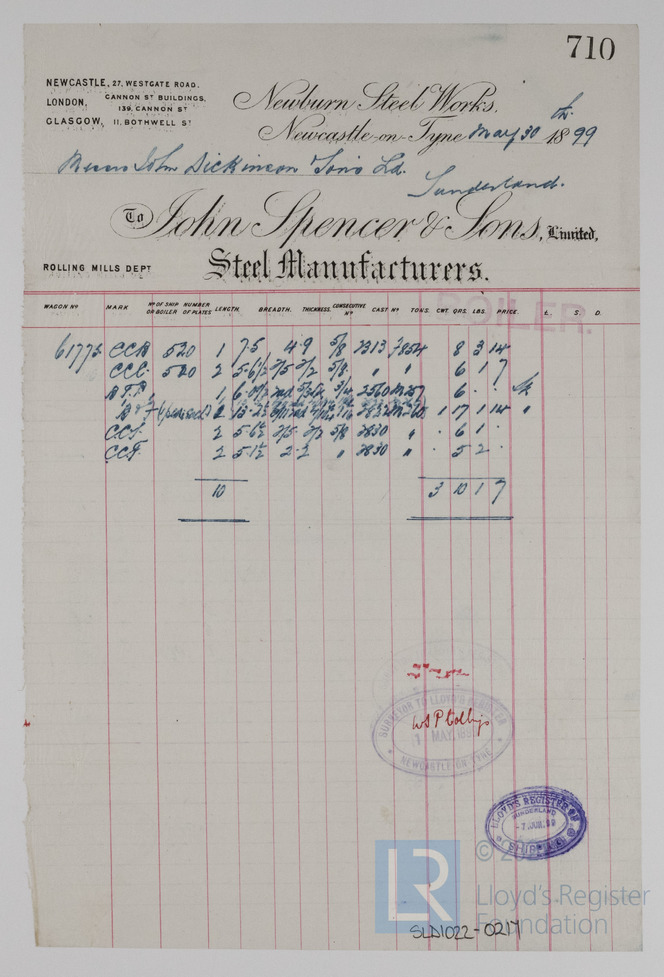 710
NEWCASTLE, 27, WESTGATE ROAD.
LONDON, CANNON ST BUILDINGS, 139, CANNON ST
GLASGOW, 11, BOTHWELL ST
Newburn Steel Works.
Newcastle-on-Tyne May 30th 1899
Messrs John Dickinson & Sons Ld.
Sunderland.
To John Spencer & Sons, Limited,
Steel Manufacturers.
ROLLING MILLS DEPT
BOILER.
WAGON No MARK No OF SHIP OR BOILER NUMBER OF PLATES LENGTH. BREADTH. THICKNESS. CONSECUTIVE No CAST No TONS. CWT. QRS. LBS. PRICE. £. S. D.
61775 CCB 520 1 7·5 4·9 5/8 2313 7854 8 3 14
CCC 520 2 5·6½ 5/8 " " 6 1 7
1 3/4 2560 6
2 1 17 1 14 "
2 5·6½ 5/8 2830 " 6 1
CCF 2 5·1½ 2·2 " 2830 " 5 2
10 3 10 1 7
SURVEYOR TO LLOYD'S REGISTER
MAY 1899
NEWCASTLE-ON-TYNE
LLOYD'S REGISTER OF
SUNDERLAND
-7 JUN. 99
SHIPPING
LR
Lloyd's Register
Foundation
SLD1022-0217